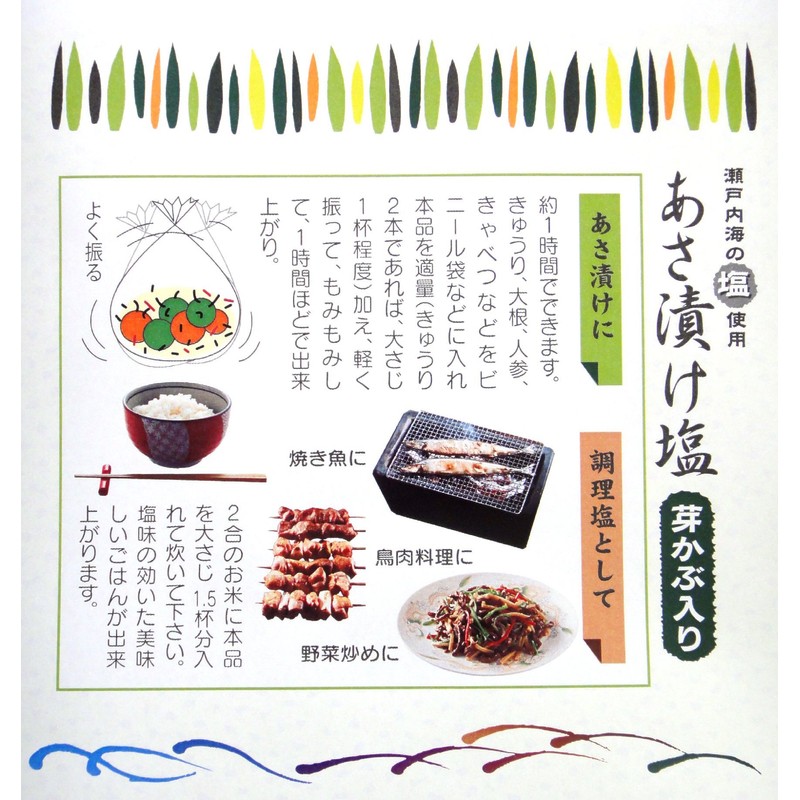 瀬戸内海の塩使用
あさ漬け塩
芽かぶ入り
あさ漬けに
約1時間でできます。
きゅうり、大根、人参、
きゃべつなどをビ
ニール袋などに入れ
本品を適量(きゅうり
2本であれば、大さじ
1杯程度)加え、軽く
振って、もみもみし
て、1時間ほどで出来
上がり。
よく振る
調理塩として
焼き魚に
鳥肉料理に
野菜炒めに
2合のお米に本品
を大さじ1.5杯分入
れて炊いて下さい。
塩味の効いた美味
しいごはんが出来
上がります。